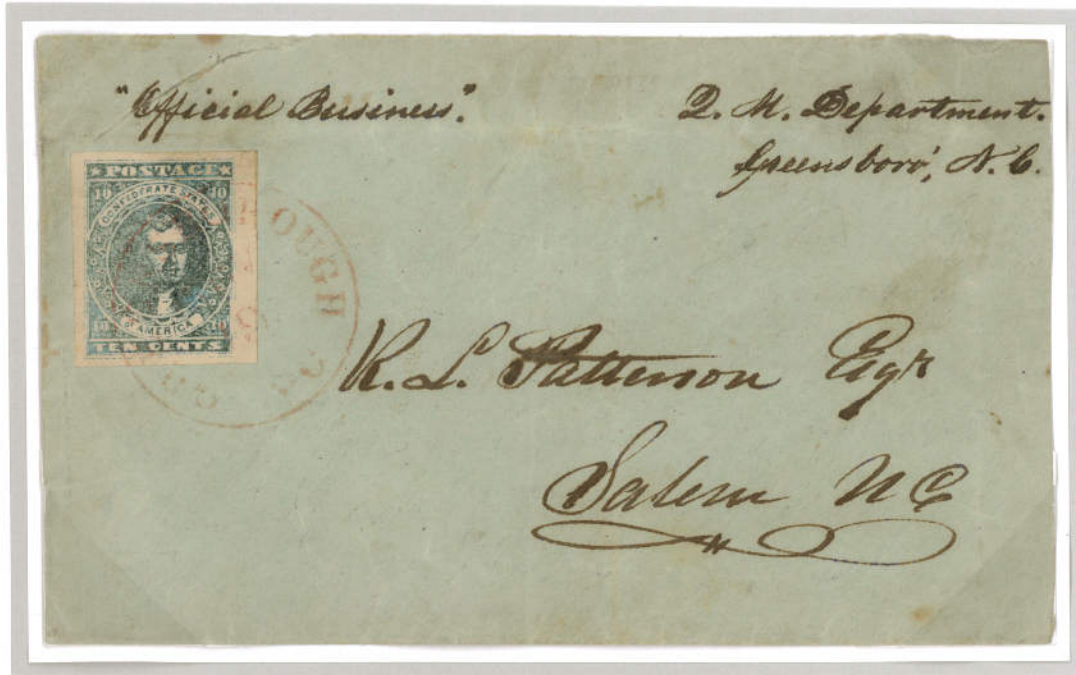 "Official Business".
Q. M. Department.
Greensboro', N. C.
★POSTAGE★
10 10
CONFEDERATE STATES
OF AMERICA
10 10
TEN CENTS
OUGH
R. L. Patterson Esqr
Salem N C